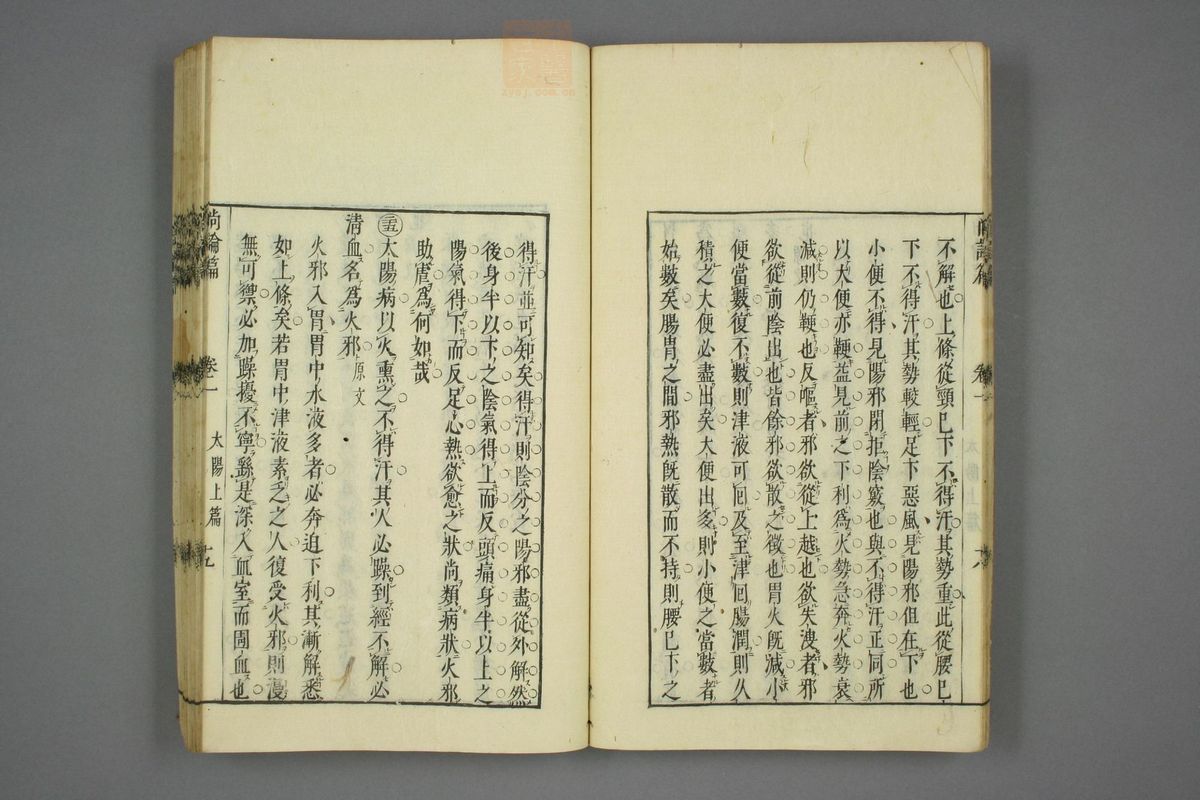 不解也上條從頸已下不得汗其勢重此從腰已
下不得汗其勢較輕足下惡風見陽邪但在下也
小便不得見陽邪閉拒陰竅也與不得汗正同所
以大便亦鞕葢見前之下利爲火勢急奔火勢衰
減則仍鞕也反嘔者邪欲從上越也欲失溲者邪
欲從前陰出也皆餘邪欲散之徵也胃火旣減小
便當數復不數則津液可回及至津回腸潤則久
積之大便必盡出矣大便出多則小便之當數者
始數矣腸胃之間邪熱旣散而不持則腰已下之
得汗並可知矣得汗則陰分之陽邪盡從外解然
後身半以下之陰氣得上而反頭痛身半以上之
陽氣得下而反足心熱欲愈之狀尚類病狀火邪
助虐爲何如哉
太陽病以火熏之不得汗其人必躁到經不解必
清血名爲火邪原文
火邪入胃胃中水液多者必奔迫下利其漸解悉
如上條矣若胃中津液素乏之人復受火邪則漫
無可禦必加躁擾不寧繇是深入血室而圊血也
尚論篇
卷一
太陽上篇